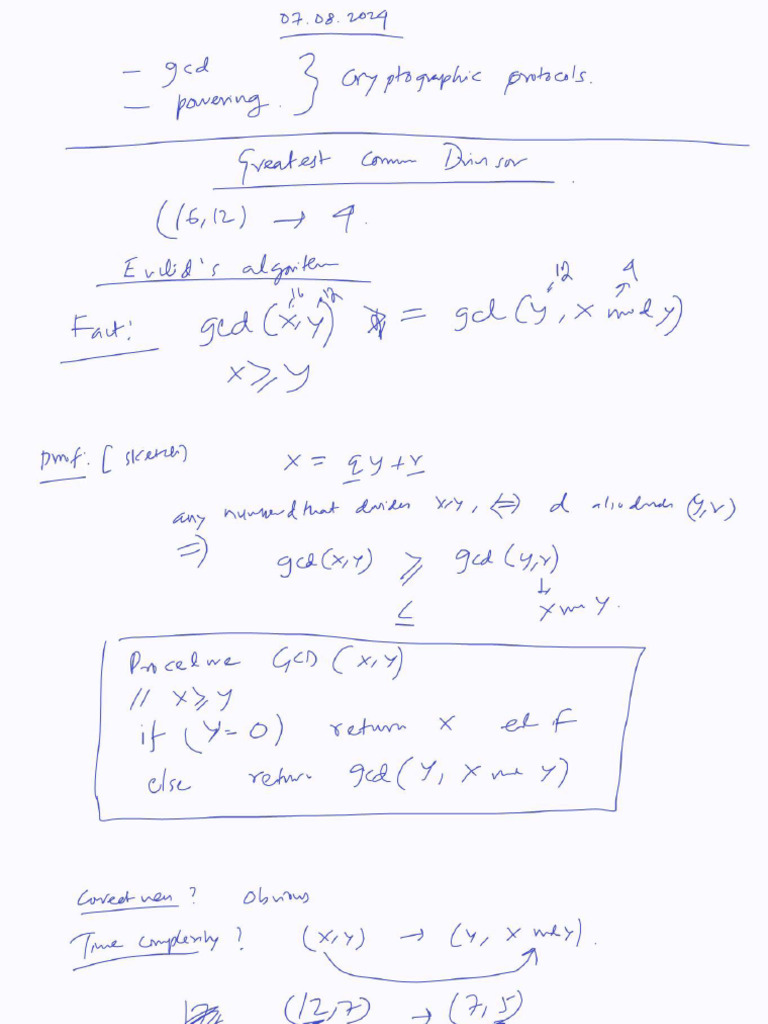 07.08.2024
– gcd
– powering. } Cryptographic protocols.
Greatest Comm Divisor
(16,12) → 4.
Euclid's algorithm
16 12 12 4
Fact: gcd(x,y) = gcd(y, x mod y)
x ≥ y
proof: [sketch)
x = qy + r
any number d that divides x,y, ⇔ d also divides (y,r)
⇒) gcd(x,y) ≥ gcd(y,r)
≤ ↓ x mod y.
Procedure GCD (x,y)
// x ≥ y
if (y=0) return x
else return gcd(y, x mod y)
Correctness? Obvious
Time complexity? (x,y) → (y, x mod y).
(12,7) → (7,5)